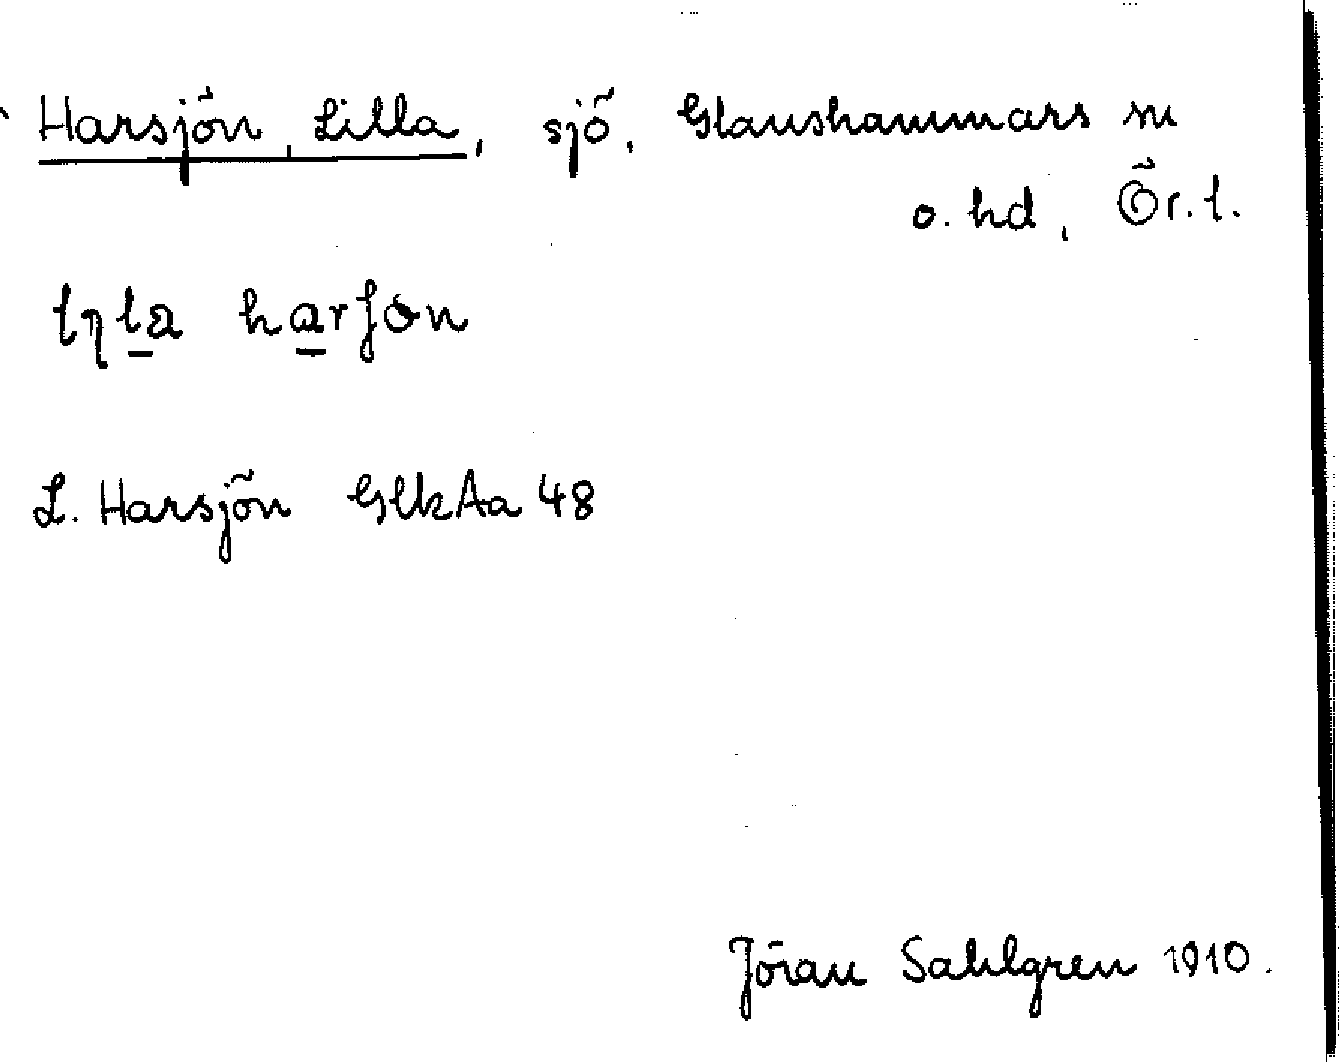 Harsjön, Lilla, sjö, Glanshammars sn
o. hd, Ör. l.
L. Harsjön GlkAa 48
Jöran Sahlgren 1910.